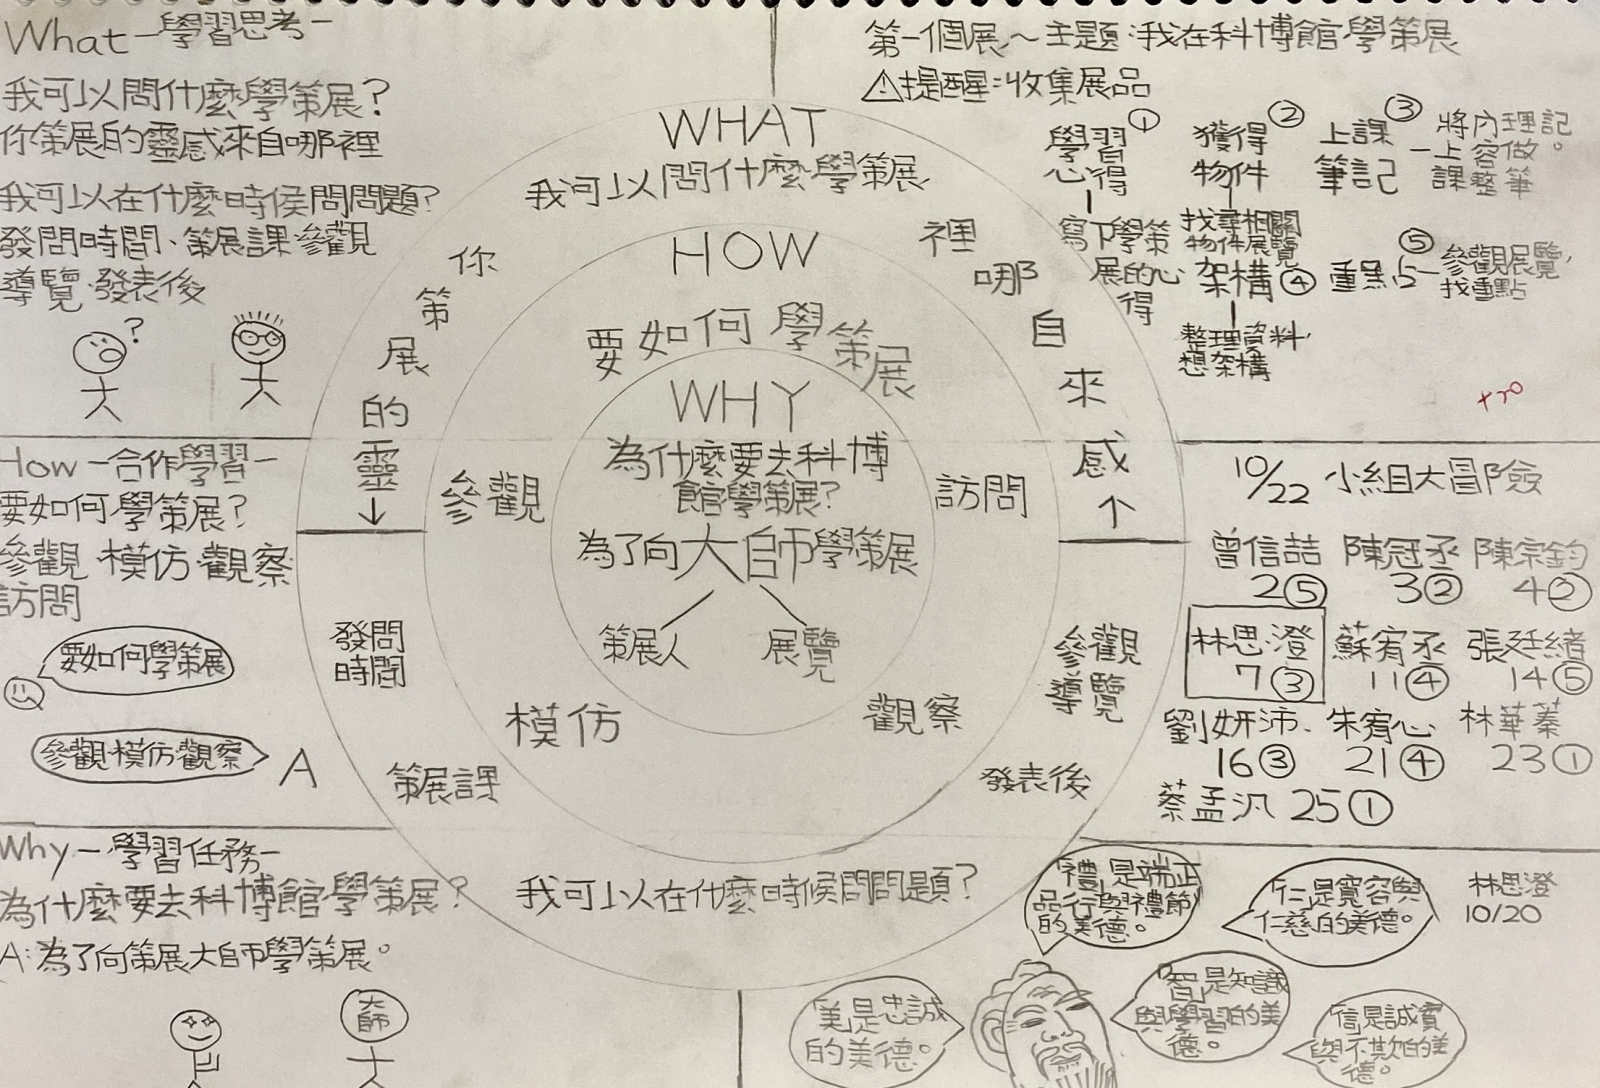 What－學習思考－
我可以問什麼學策展?
你策展的靈感來自哪裡
我可以在什麼時候問問題?
發問時間、策展課、參觀
導覽、發表後
?
How－合作學習－
要如何學策展?
參觀、模仿、觀察
訪問
要如何學策展
參觀、模仿、觀察
A
Why－學習任務－
為什麼要去科博館學策展?
A:為了向策展大師學策展。
大師
WHAT
我可以問什麼學策展
你策展的靈↓
感來自哪裡
↑
發問
時間
策展課
我可以在什麼時候問問題?
發表後
參觀
導覽
HOW
要如何學策展
參觀
訪問
模仿
觀察
WHY
為什麼要去科博
館學策展?
為了向大師學策展
策展人 展覽
第一個展～主題:我在科博館學策展
⚠提醒:收集展品
學習
心得
①
寫下學策
展的心
得
獲得
物件
②
找尋相關
物件展覽
上課
筆記
③
將上課
內容整
理做筆
記。
架構④
整理資料,
想架構
重點⑤
參觀展覽,
找重點
+20
10/22 小組大冒險
曾信喆 陳冠丞 陳宗鈞
2⑤ 3② 4②
林思澄 蘇宥丞 張廷緒
7③ 11④ 14⑤
劉妍沛 朱宥心 林華蓁
16③ 21④ 23①
蔡孟汎 25①
「禮」是端正
品行與禮節
的美德。
「仁」是寬容與
仁慈的美德。
林思澄
10/20
是忠誠
的美德。
「智」是知識
與學習的美
德。
「信」是誠實
與不欺的美
德。